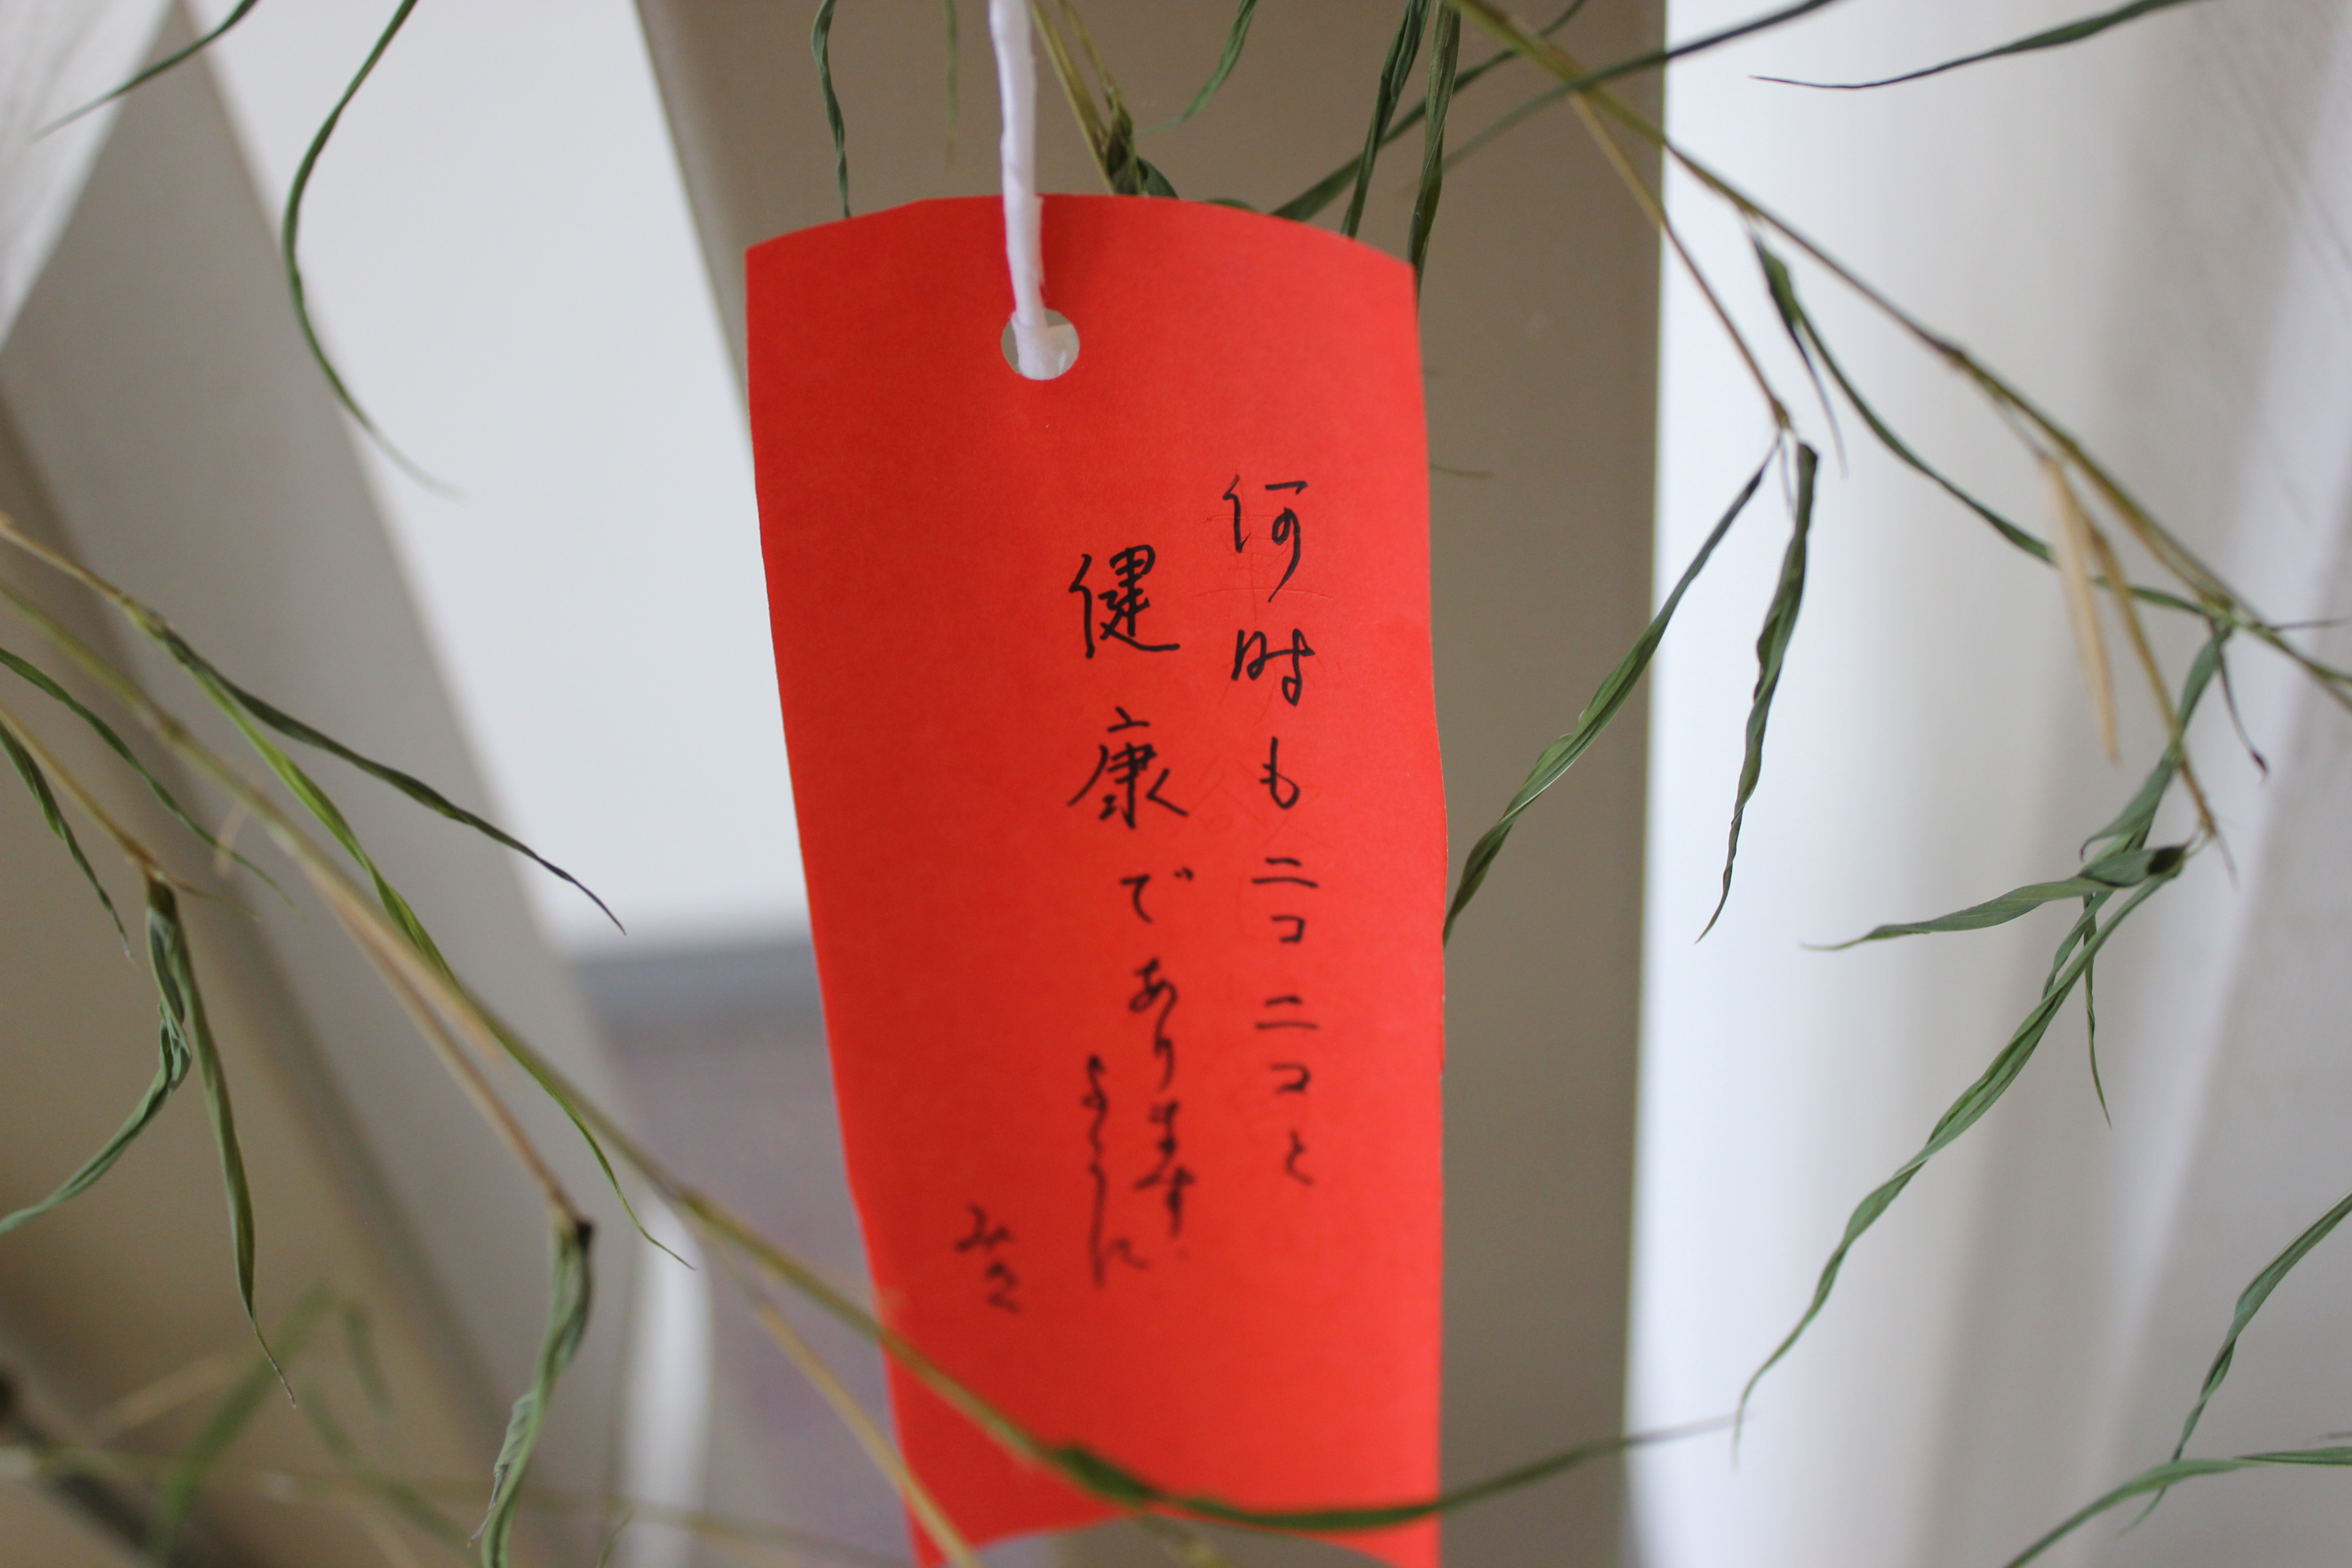 何時もニコニコと
健康であります
ように
みき